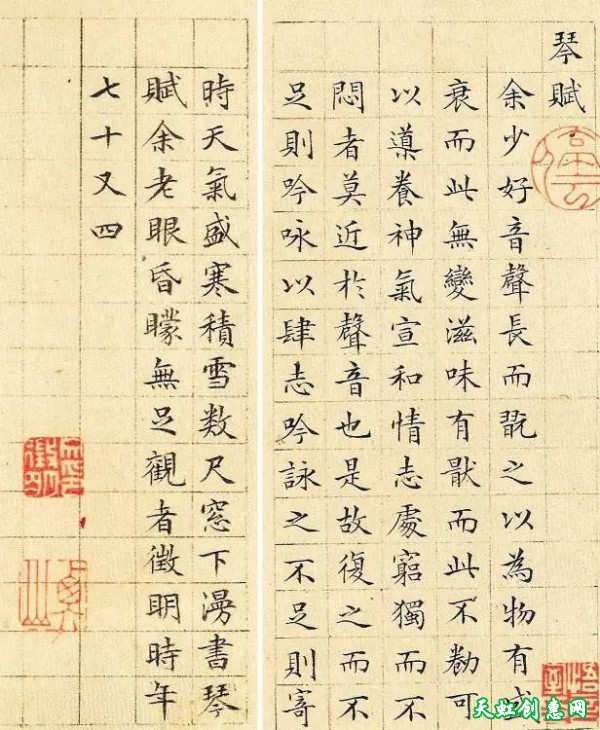 琴賦
停雲
余少好音聲長而翫之以為物有盛
衰而此無變滋味有猒而此不勌可
以導養神氣宣和情志處窮獨而不
悶者莫近於聲音也是故復之而不
足則吟咏以肆志吟詠之不足則寄
時天氣盛寒積雪数尺窓下漫書琴
賦余老眼昏矇無足觀者徵明時年
七十又四
天虹创惠网